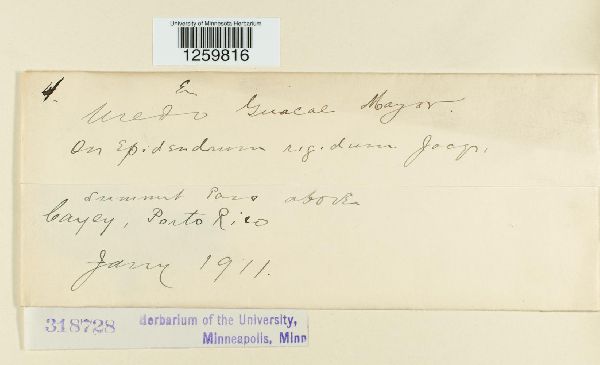 University of Minnesota Herbarium
1259816
4.
En
Uredo Guacae Mayor.
On Epidendrum rigidum Jacq.
Summit Pass above
Cayey, Porto Rico
Jany 1911.
318728
Herbarium of the University,
Minneapolis, Minn